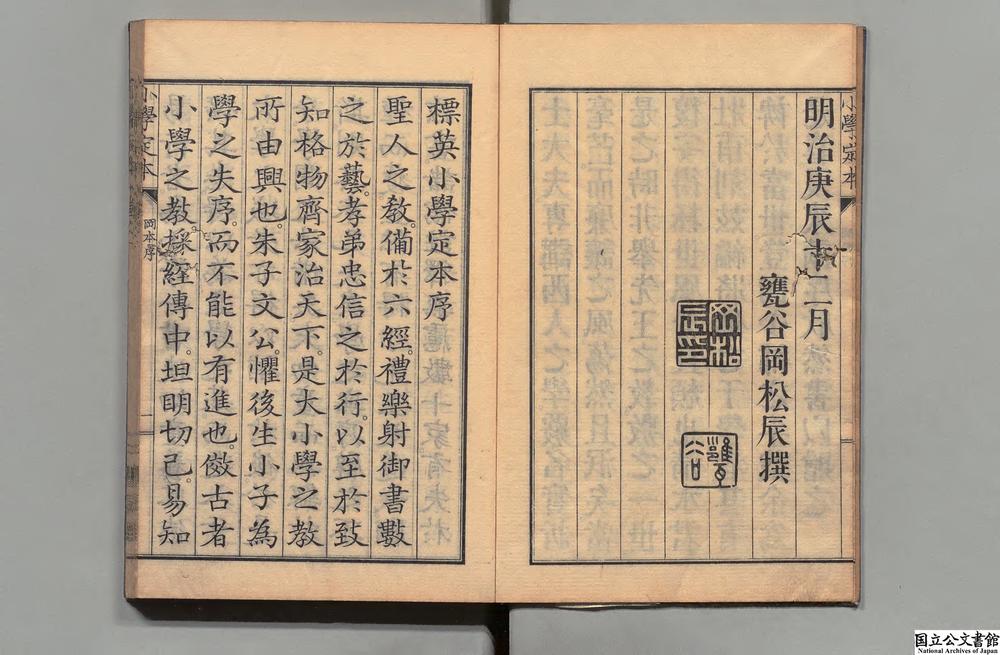 小學定本
明治庚辰十二月
甕谷岡松辰撰
岡松
辰印
甕谷
標英小學定本序
聖人之教。備於六經。禮樂射御書數
之於藝。孝弟忠信之於行。以至於致
知格物齊家治天下。是大小學之教
所由興也。朱子文公。懼後生小子為
學之失序。而不能以有進也。倣古者
小學之教。採經傳中。坦明切己。易知
小學定本
岡本序
一
国立公文書館
National Archives of Japan